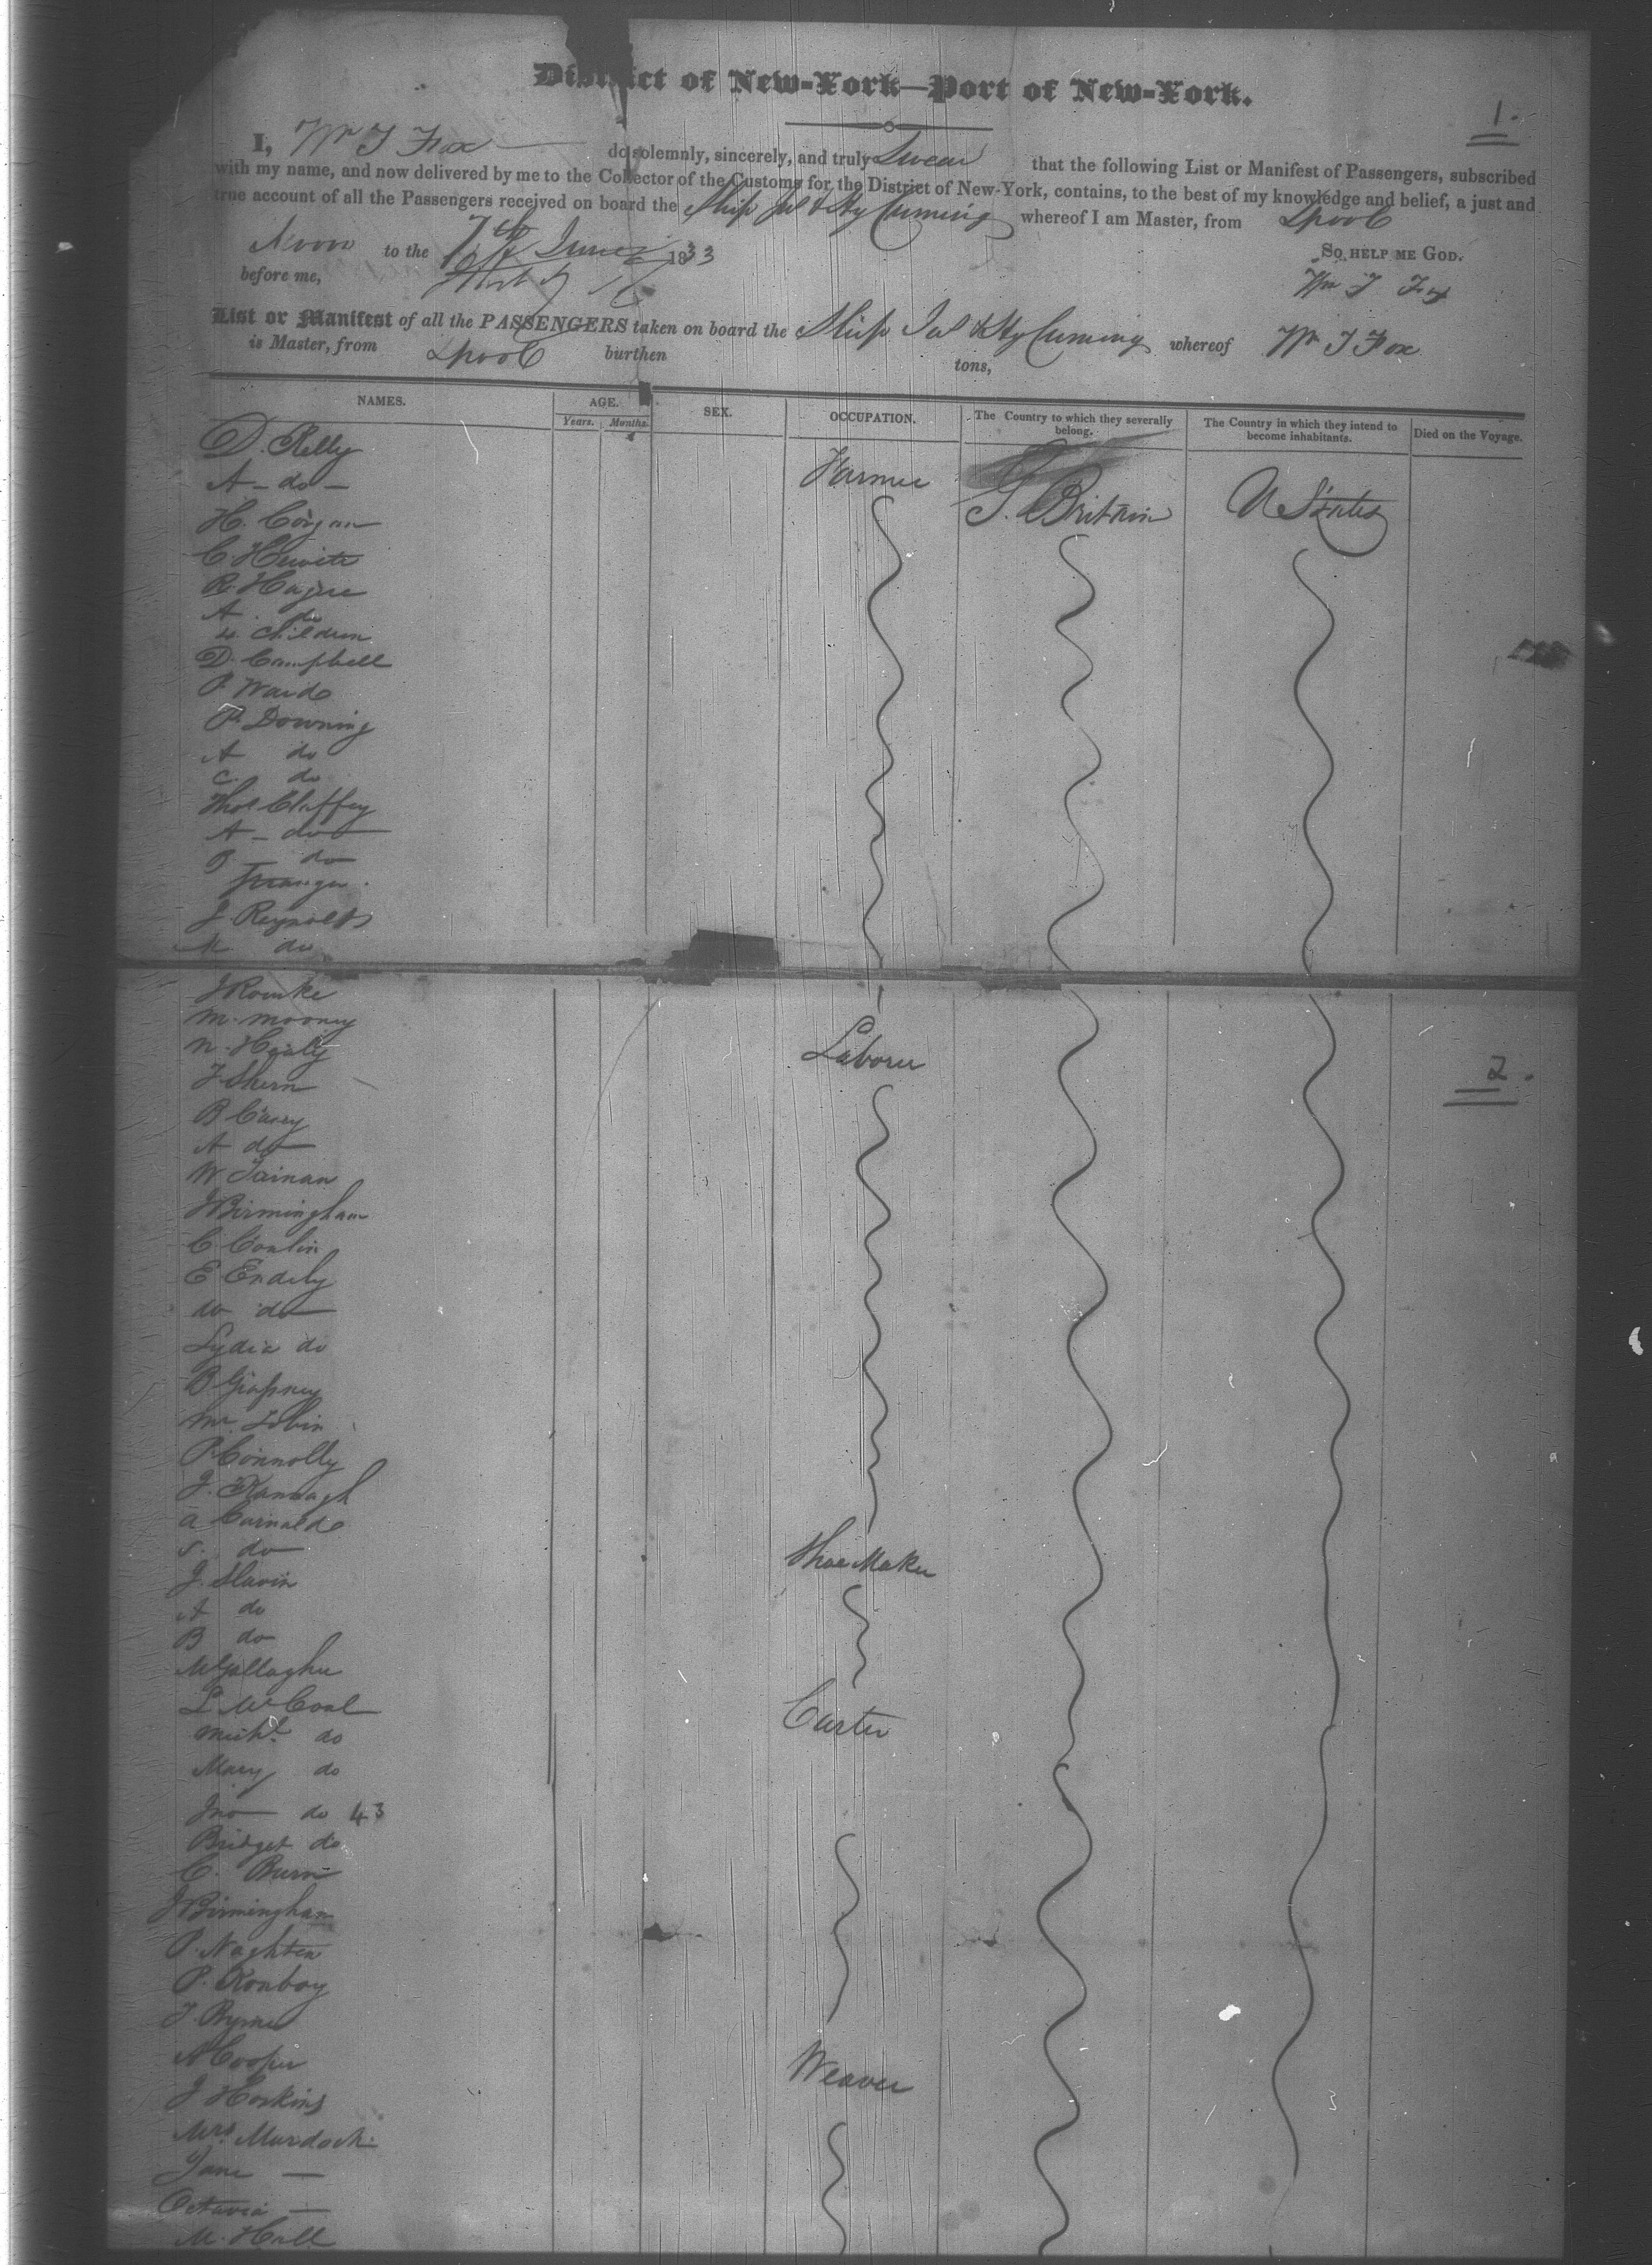 District of New-York—Port of New-York.
1.
I, Wm J Fox do solemnly, sincerely, and truly Swear that the following List or Manifest of Passengers, subscribed
with my name, and now delivered by me to the Collector of the Customs for the District of New-York, contains, to the best of my knowledge and belief, a just and
true account of all the Passengers received on board the Ship Jas & Hy Cuming whereof I am Master, from Lpool
Sworn to the 7th June 1833 So help me God.
before me, Wm J Fox
List or Manifest of all the PASSENGERS taken on board the Ship Jas & Hy Cuming whereof Wm J Fox
is Master, from Lpool burthen tons,
NAMES. AGE. SEX. OCCUPATION. The Country to which they severally belong. The Country in which they intend to become inhabitants. Died on the Voyage.
Years. Months.
D. Kelly
A - do - Farmer
H. Corgan G. Britain U States
C. Hewitt
R. Hague
A. do
4 Children
D. Campbell
P. Ward
P. Downing
A do
C. do
Thos Claffey
A - do
do
J. Reynolds
M. do
J Rourke
M. Mooney
N. Healy Laborer
J Shern 2.
B Carey
A do
W
J Birmingham
C Conlin
E Endely
W do
Lydia do
B Gaffney
M. Tobin
P Connolly
J. Kanvagh
A
S. do Shoe Maker
J. Slavin
A do
B do
M Gallagher
L McCoal Carter
Michl do
Mary do
Jno do 43
Bridget do
C. Burn
J Birmingham
P. Naghten
P. Konboy
J. Byrne
A Cooper Weaver
J Hoskins
Mrs Murdoch
Jane —
Octavia —
M. Hall